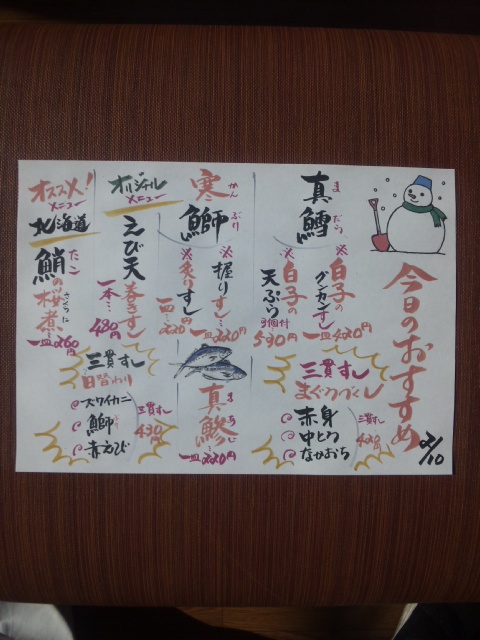 今日のおすすめ
2/10
真鱈
まだら
※白子の
グンカンすし
一皿420円
※白子の
天ぷら
3個付
530円
三貫すし
まぐろづくし
赤身
中とろ
なかおち
三貫すし
420円
寒鰤
かんぶり
※握りすし…
一皿220円
※炙りすし
一皿…220円
真鯵
まあじ
一皿220円
オリジナル
メニュー
えび天
巻きすし
一本…
480円
オススメ!
メニュー
北海道
鮹の桜煮
タコ
さくらに
一皿260円
三貫すし
日替わり
ズワイカニ
鰤
赤えび
三貫すし
430円